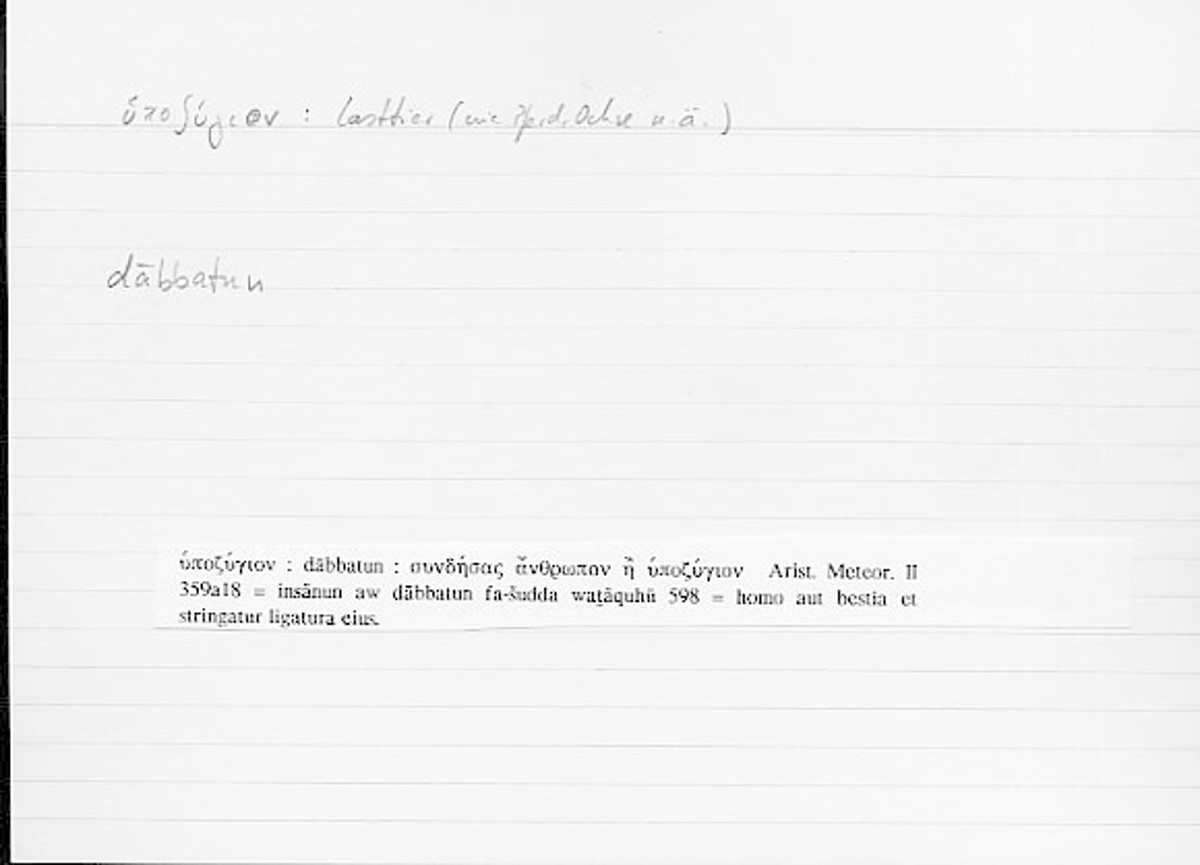 ὑποζύγιον : Lasttier (wie Pferd, Ochse u.ä.)
dābbatun
ὑποζύγιον : dābbatun : συνδήσας ἄνθρωπον ἢ ὑποζύγιον Arist. Meteor. II
359a18 = insānun aw dābbatun fa-šudda waṯāquhū 598 = homo aut bestia et
stringatur ligatura eius.